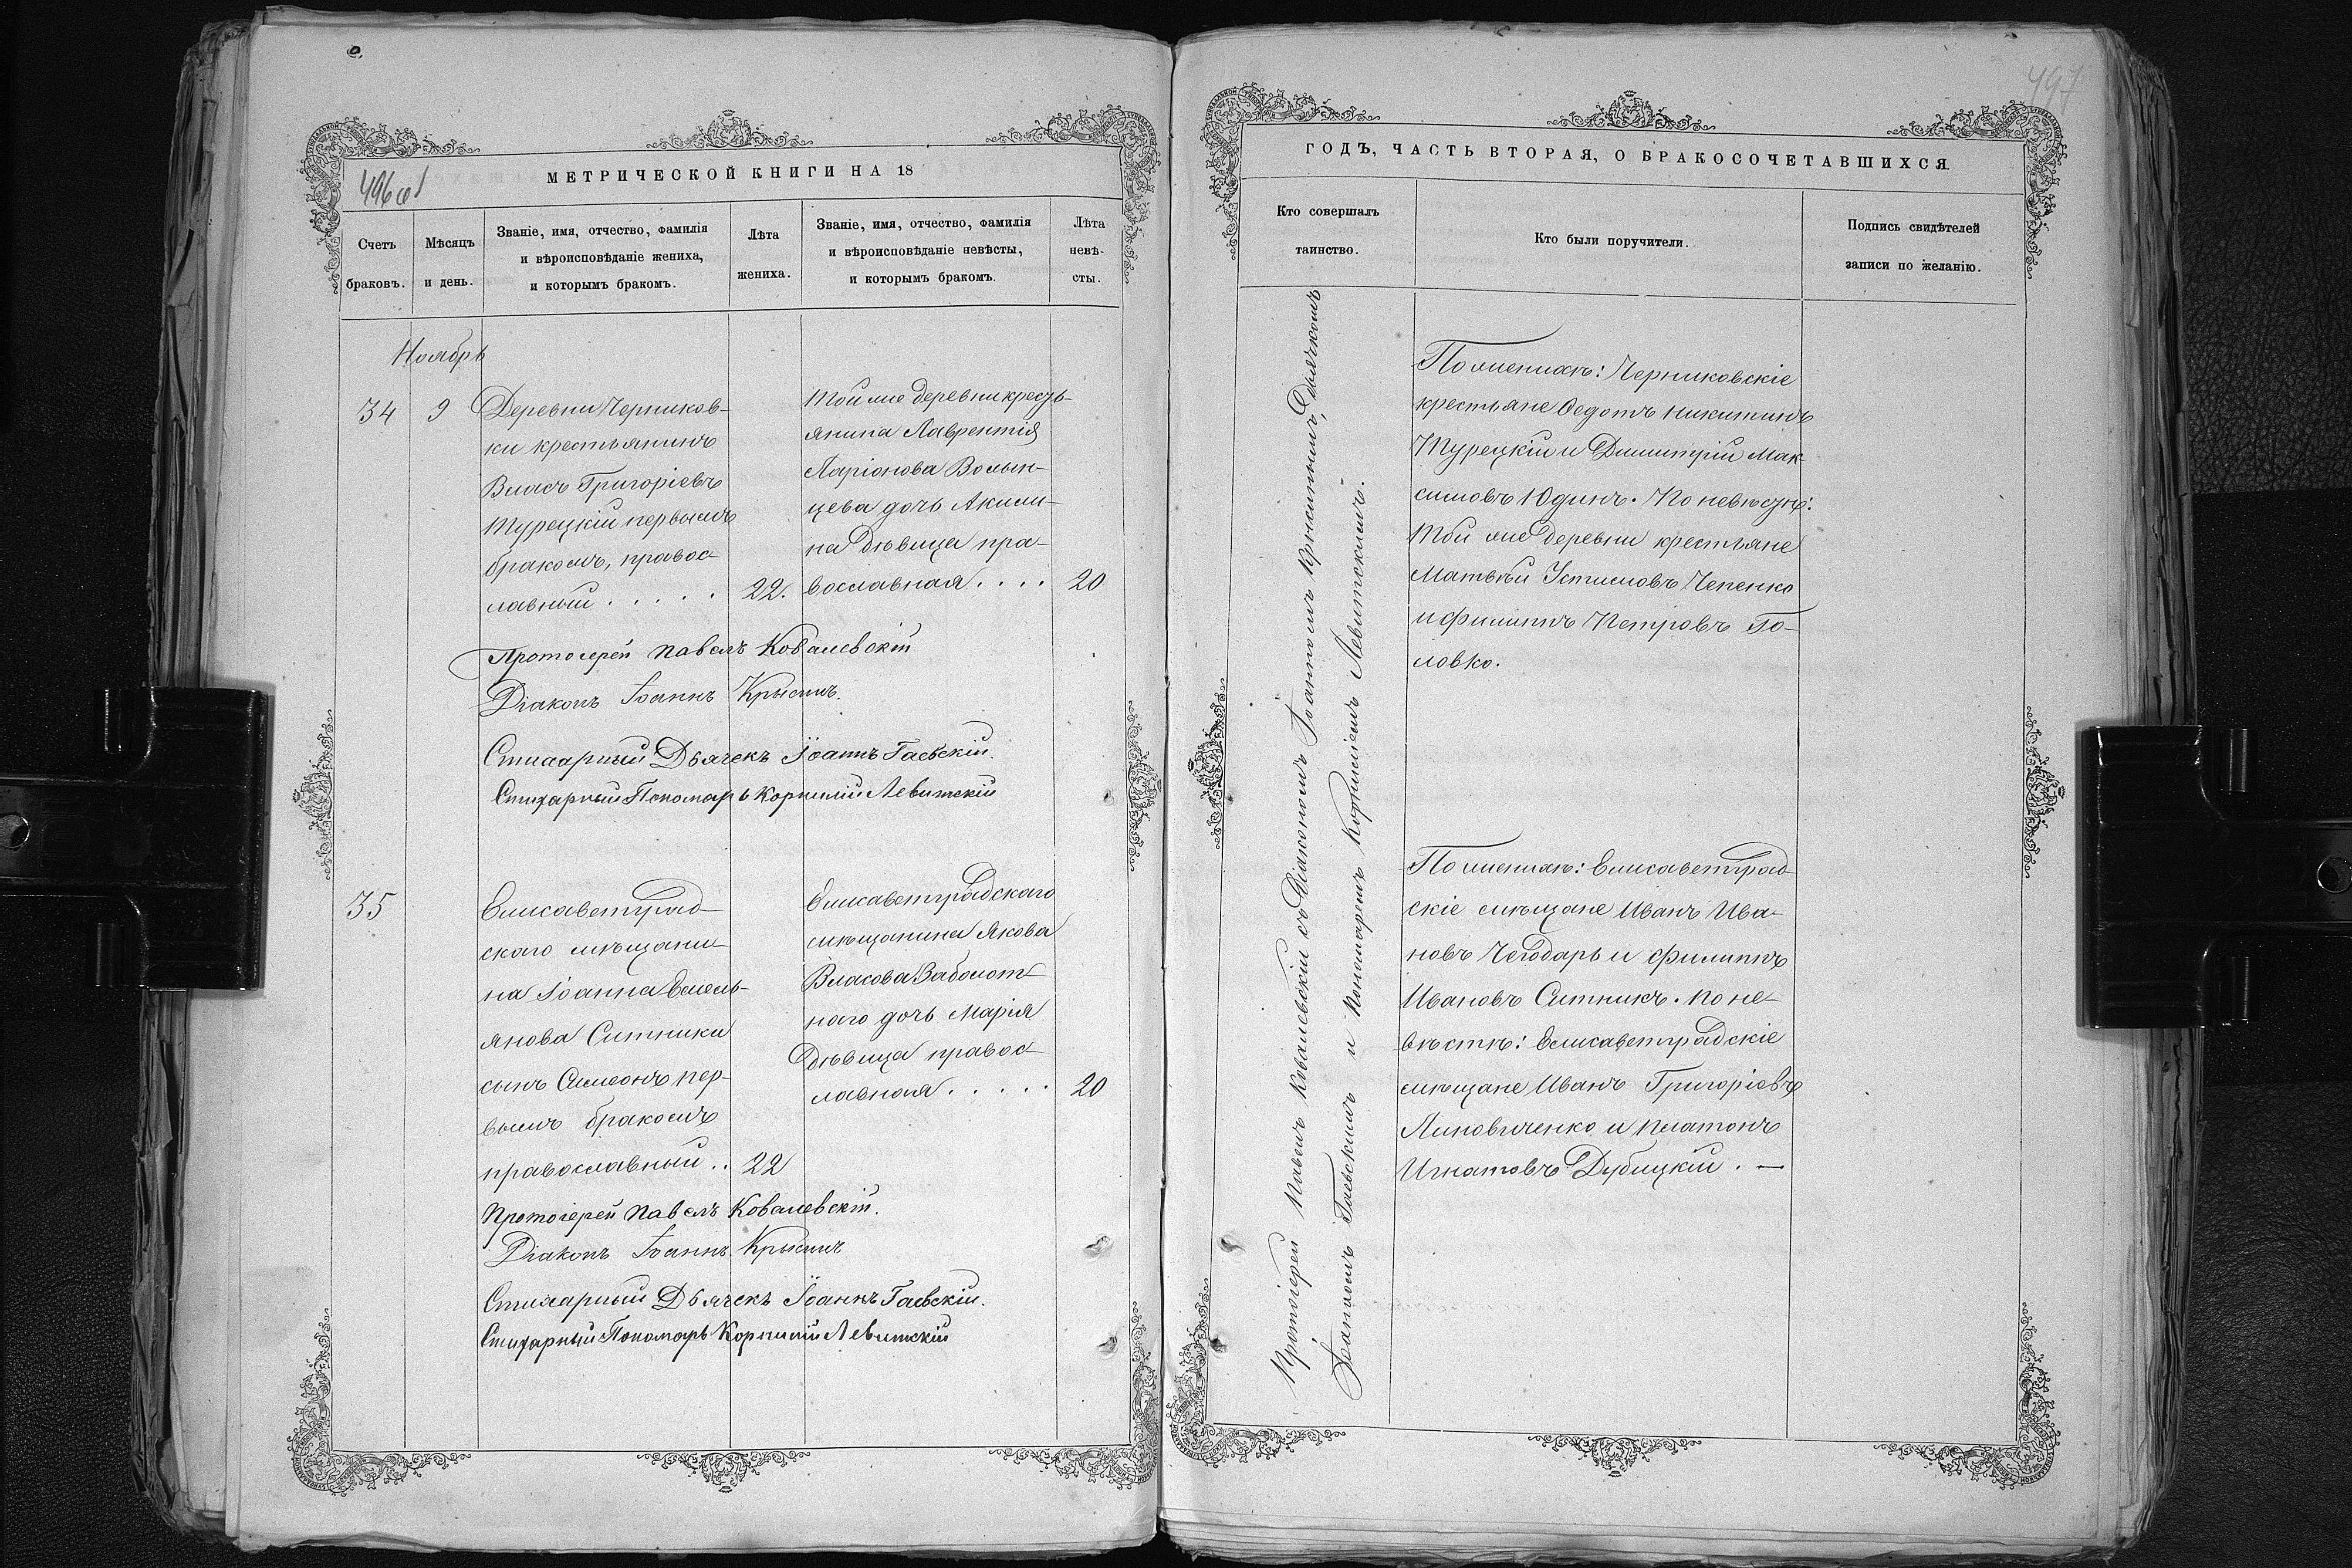 496 об
МЕТРИЧЕСКОЙ КНИГИ НА 18
Счетъ
браковъ.
Мѣсяцъ
и день.
Званіе, имя, отчество, фамилія
и вѣроисповѣданіе жениха,
и которымъ бракомъ.
Лѣта
жениха.
Званіе, имя, отчество, фамилія
и вѣроисповѣданіе невѣсты,
и которымъ бракомъ.
Лѣта
невѣ-
сты.
Ноябрь
34
9
Деревни Черников-
ки крестьянинъ
Власъ Григоріевъ
Турецкій первымъ
бракомъ, правос-
лавный . . . . .
22.
Той же деревни кресть-
янина Лаврентія
Ларіонова Волын-
цева дочь Акили-
на Дѣвица пра-
вославная . . . .
20
Протоіерей Павелъ Ковалевскій
Діаконъ Іоаннъ Крысинъ.
Стихарный Дьячекъ Іоаннъ Гаевскій.
Стихарный Пономарь Корнилій Левитскій
35
Елисаветград-
скаго мѣщани-
на Іоанна Емель-
янова Ситника
сынъ Симеонъ пер-
вымъ бракомъ
православный . .
22
Елисаветградскаго
мѣщанина Якова
Власова Заболот-
наго дочь Марія
Дѣвица правос-
лавная . . . . .
20
Протоіерей Павелъ Ковалевскій.
Діаконъ Іоаннъ Крысинъ
Стихарный Дьячекъ Іоаннъ Гаевскій.
Стихарный Пономарь Корнилій Левитскій
497
ГОДЪ, ЧАСТЬ ВТОРАЯ, О БРАКОСОЧЕТАВШИХСЯ.
Кто совершалъ
таинство.
Кто были поручители.
Подпись свидѣтелей
записи по желанію.
Протоіерей Павелъ Ковалевскій съ Діакономъ Іоанномъ Крысинымъ, Дьячкомъ
Іоанномъ Гаевскимъ и Пономаремъ Корниліемъ Левитскимъ.
По женихѣ: Черниковскіе
крестьяне Ѳедотъ Никитинъ
Турецкій и Димитрій Мак-
симовъ Юдинъ. По невѣстѣ:
Той же деревни крестьяне
Матвѣй Устимовъ Чепенко
и Филиппъ Петровъ Го-
ловко.
По женихѣ: Елисаветград-
скіе мѣщане Иванъ Ива-
новъ Чегодарь и Филиппъ
Ивановъ Ситникъ. По не-
вѣстѣ: Елисаветградскіе
мѣщане Иванъ Григоріевъ
Линовиченко и Платонъ
Игнатовъ Дубицкій. —